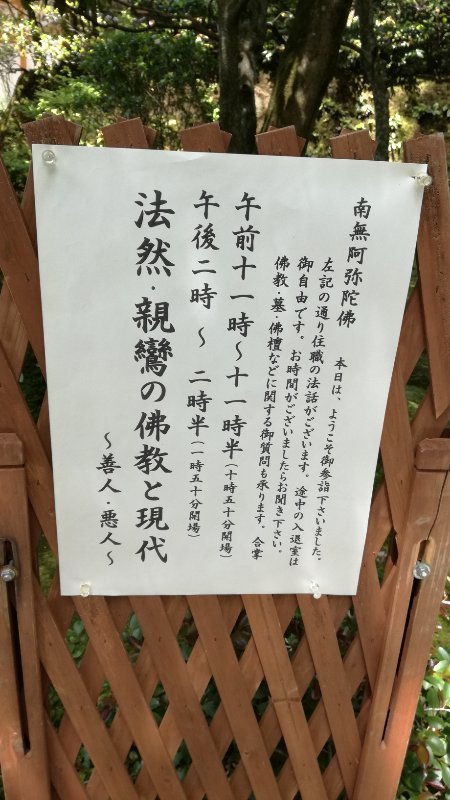 南無阿弥陀佛　本日は、ようこそ御参詣下さいました。
左記の通り住職の法話がございます。途中の入退室は
御自由です。お時間がございましたらお聞き下さい。
佛教・墓・佛檀などに関する御質問も承ります。合掌
午前十一時～十一時半（十時五十分開場）
午後二時 ～ 二時半（一時五十分開場）
法然・親鸞の佛教と現代
～善人・悪人～